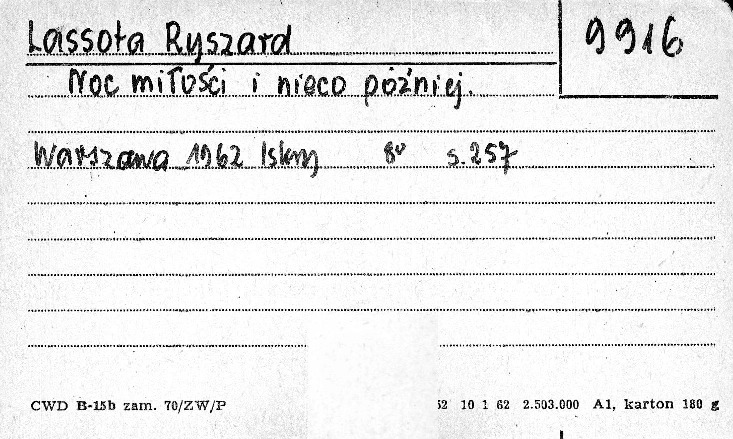 Lassota Ryszard
9916
Noc miłości i nieco później.
Warszawa 1962 Iskry 8° s. 257
CWD B-15b zam. 70/ZW/P
52 10 1 62 2.503.000 A1, karton 180 g